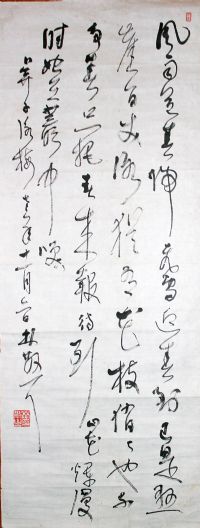 风雨送春归飞雪迎春到已是悬
崖百丈冰犹有花枝俏俏也不
争春只把春来報待到山花爛漫
时她在叢中笑
卜算子咏梅 年十一月